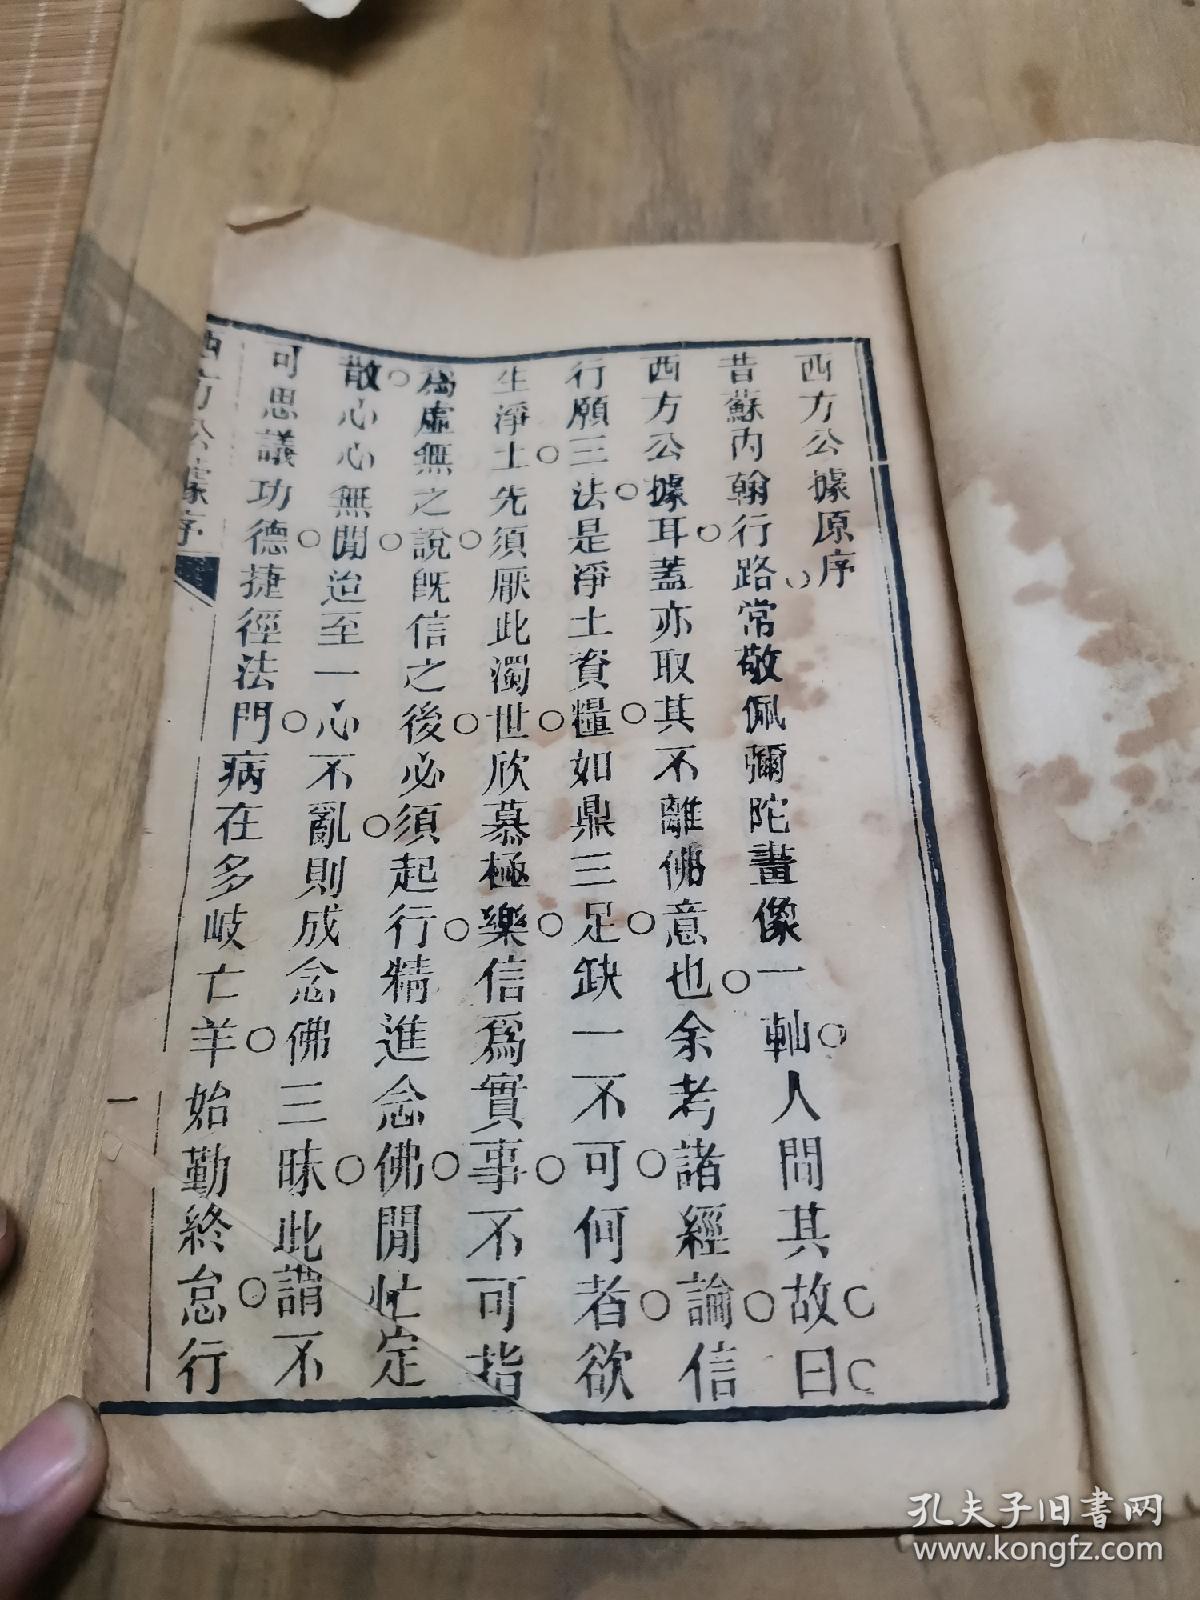 西方公據原序
昔蘇內翰行路常敬佩彌陀畫像一軸人問其故曰
西方公據耳蓋亦取其不離佛意也余考諸經論信
行願三法是淨土資糧如鼎三足缺一不可何者欲
生淨土先須厭此濁世欣慕極樂信爲實事不可指
爲虛無之說旣信之後必須起行精進念佛閒忙定
散心心無間迨至一心不亂則成念佛三昧此謂不
可思議功德捷徑法門病在多岐亡羊始勤終怠行
西方公據序
一
孔夫子旧书网
www.kongfz.com